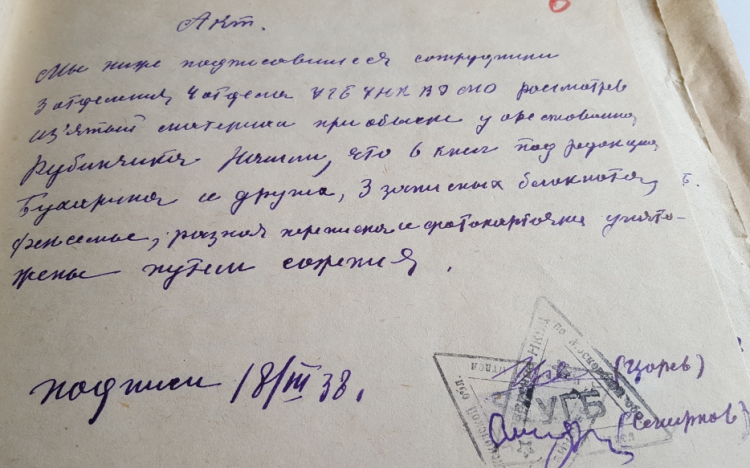 Акт.
Мы ниже подписавшиеся сотрудники
3 отделения 4 отдела УГБ УНКВД МО рассмотрев
из'ятый материал при обыске у арестованно
Рубинчика нашли, что 6 книг под редакцие
Бухарина и друга, 3 записных блокнота,
разная переписка и фотокарточки уничто-
жены путем сожжения.
подписи 18/III 38.
(Царев)
УГБ
(Смирнов)